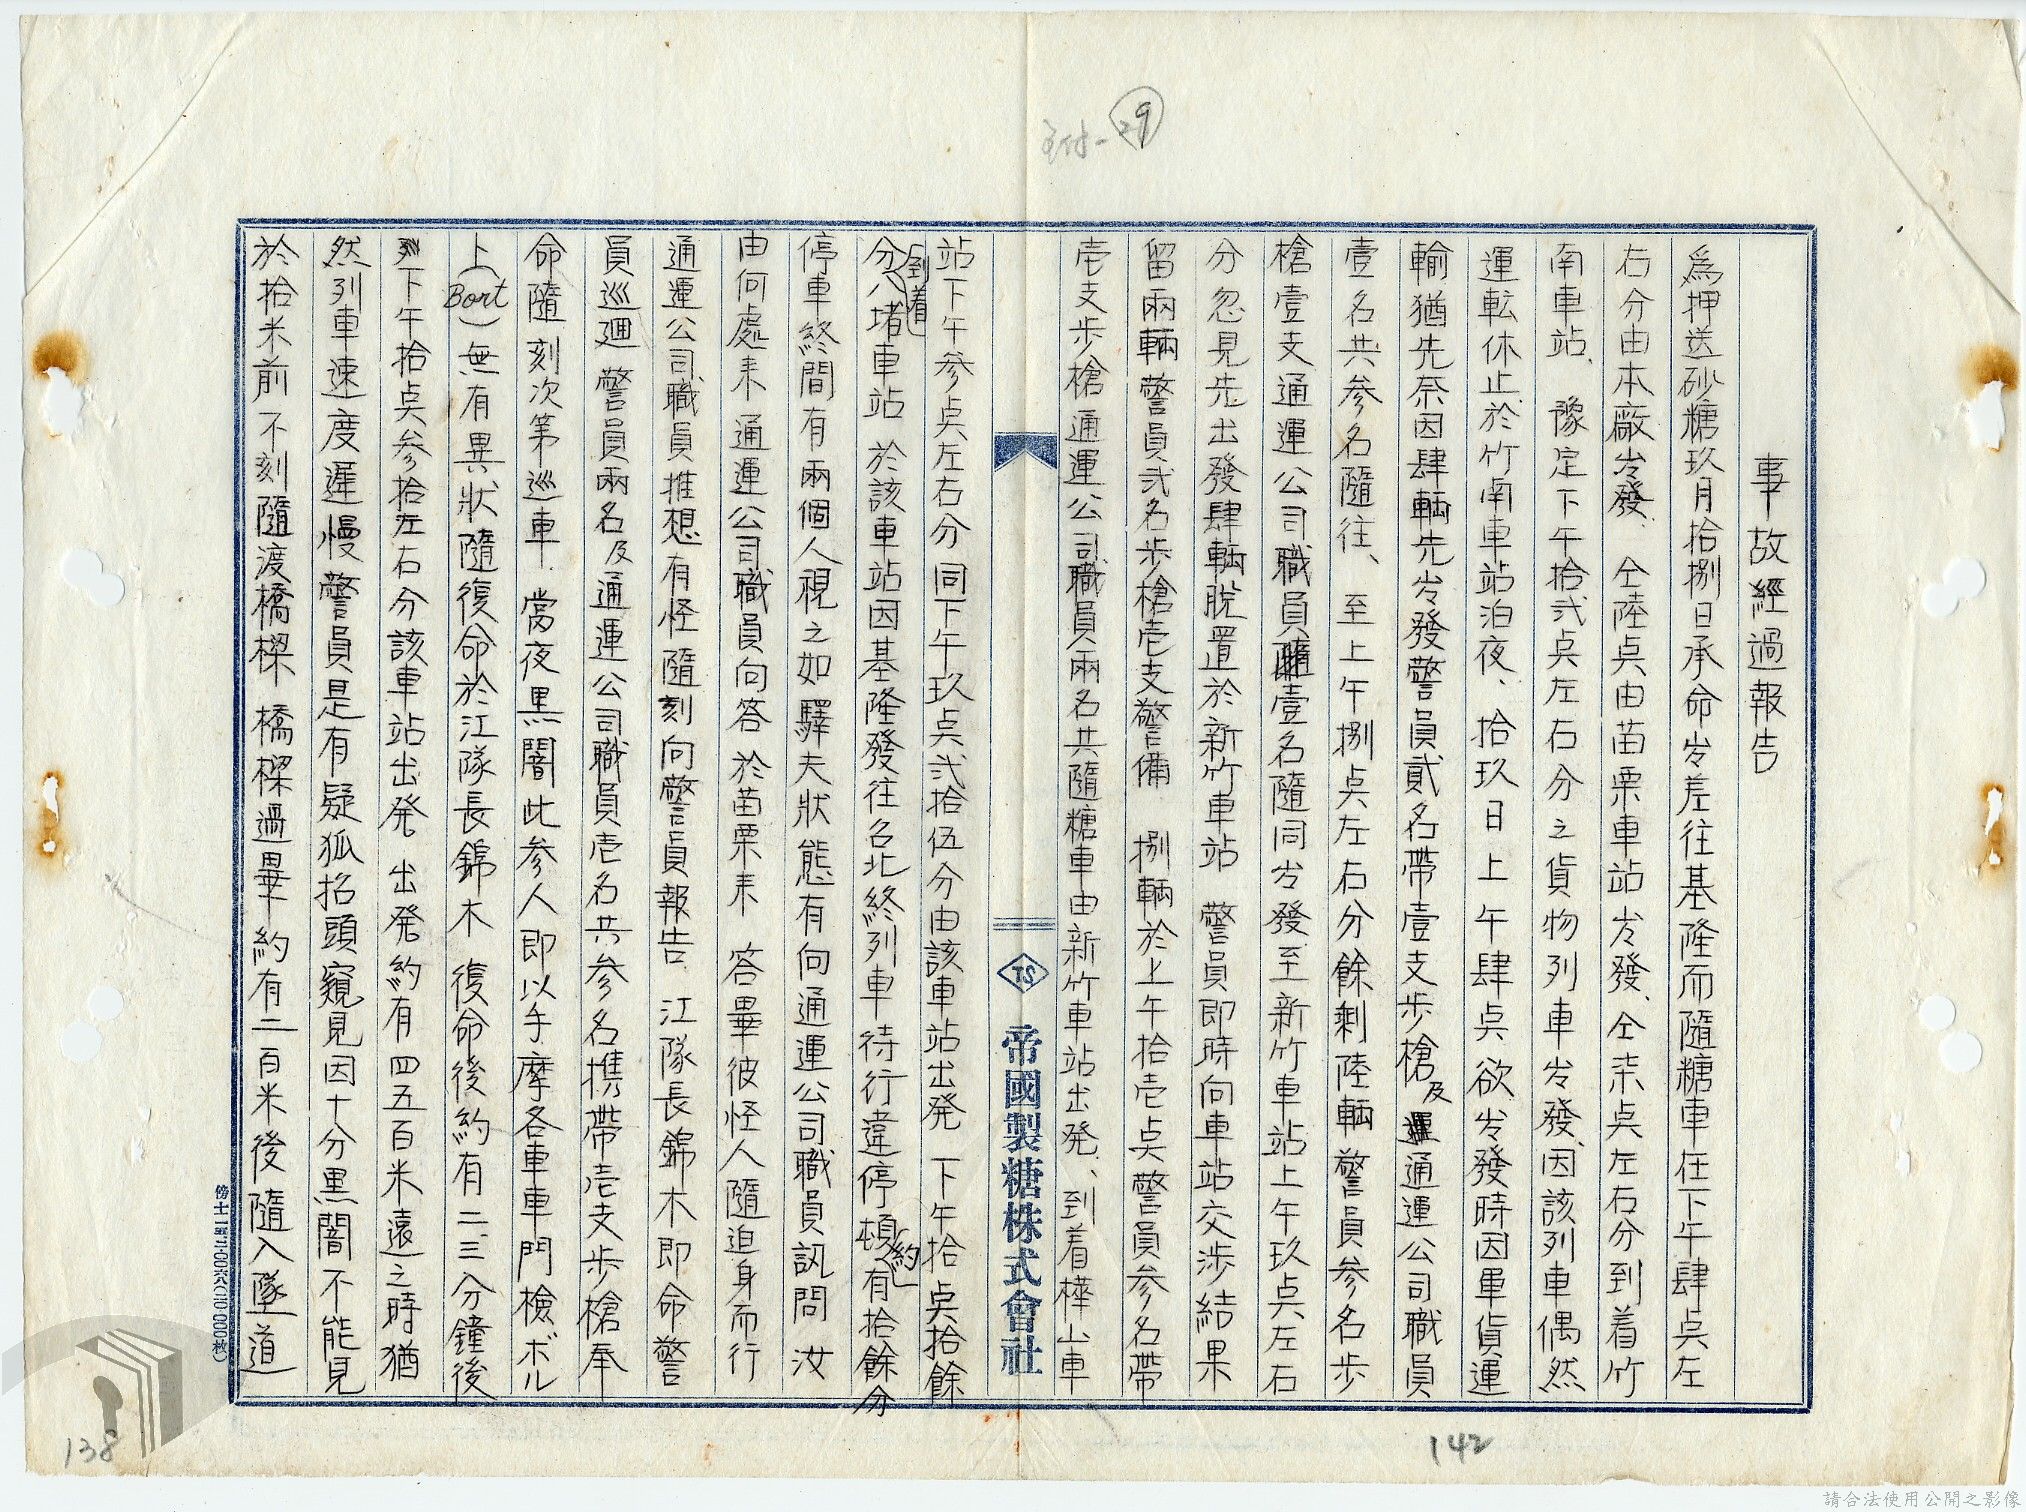 29
事故經過報告
為押送砂糖玖月拾捌日承命出差往基隆而隨糖車在下午肆点左
右分由本廠出發、仝陸点由苗栗車站出發、仝柒点左右分到着竹
南車站、豫定下午拾弍点左右分之貨物列車出發、因該列車偶然
運転休止於竹南車站泊夜、拾玖日上午肆点欲出發時因軍貨運
輸猶先奈因肆輛先出發警員貳名帶壹支步槍及通運公司職員
壹名共參名隨往、至上午捌点左右分餘剩陸輛警員參名步
槍壹支通運公司職員壹名隨同出發至新竹車站上午玖点左右
分忽見先出發肆輛脫置於新竹車站 警員即時向車站交涉結果
留兩輛警員弍名步槍壱支警備 捌輛於上午拾壱点警員參名帶
壱支步槍通運公司職員兩名共隨糖車由新竹車站出発、到着樺山車
帝國製糖株式會社
站下午參点左右分同下午玖点弍拾伍分由該車站出発 下午拾点拾餘
分到着八堵車站 於該車站因基隆發往台北終列車待行違停頓約有拾餘分
停車終間有兩個人視之如驛夫狀態有向通運公司職員訊問 汝
由何處来 通運公司職員向答 於苗栗来 答畢彼怪人隨迫身而行
通運公司職員推想有怪隨刻向警員報告 江隊長錦木即命警
員巡廻 警員兩名及通運公司職員壱名共參名携帶壱支步槍奉
命隨刻次第巡車 當夜黒闇此參人即以手摩各車車門檢ボル
上(Bort)無有異狀隨復命於江隊長錦木 復命後約有二、三分鐘後
下午拾点參拾左右分該車站出発 出発約有四五百米遠之時猶
然列車速度遲慢警員是有疑狐招頭窺見因十分黒闇不能見
於拾米前不刻隨渡橋樑 橋樑過畢約有二百米後隨入墜道
138
142
請合法使用公開之影像